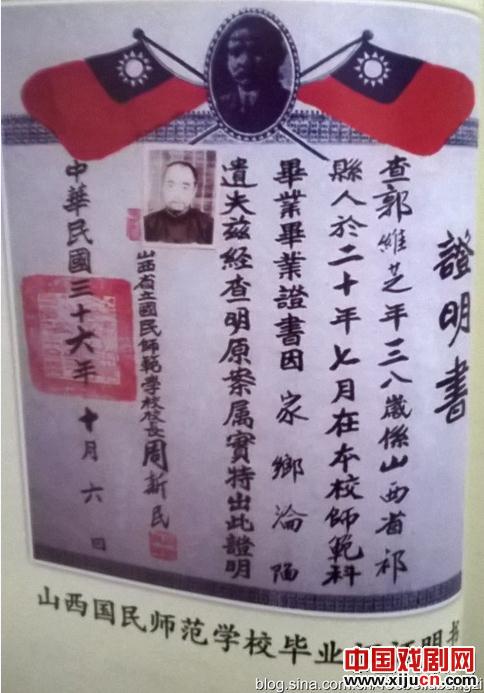 證明書
查郭維芝年三八歲係山西省祁
縣人於二十年七月在本校師範科
畢業畢業證書因家鄉淪陷
遺失兹經查明原案属實特出此證明
山西省立國民師範學校校長周新民
中華民國三十六年十月六日
山西国民师范学校毕业证证明书
blog.sina.com.cn
中国戏剧网
www.xijucn.com